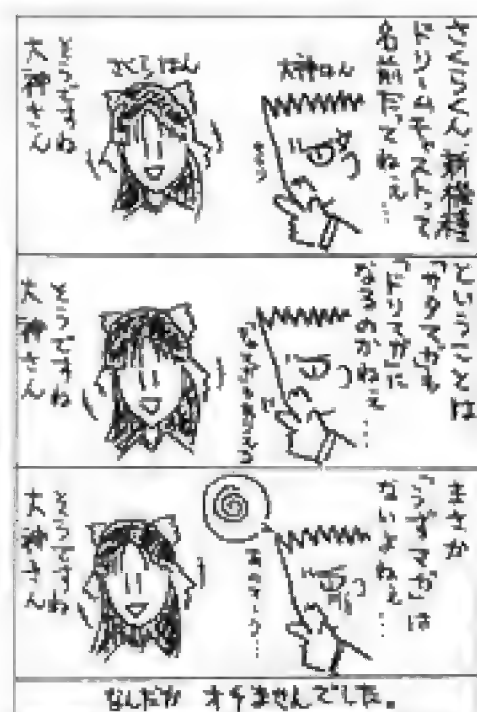 さくらくん、新機種
ドリームキャストって
名前だってねぇ…
大神はん
さくらはん
そうですね
大神さん
ということは
「サタマガ」も
「ドリマガ」に
なるのかねぇ…
そうですね
大神さん
まさか
「うずマガ」は
ないよねぇ…
あのマーク…
そうですね
大神さん
なんだか オチませんでした。